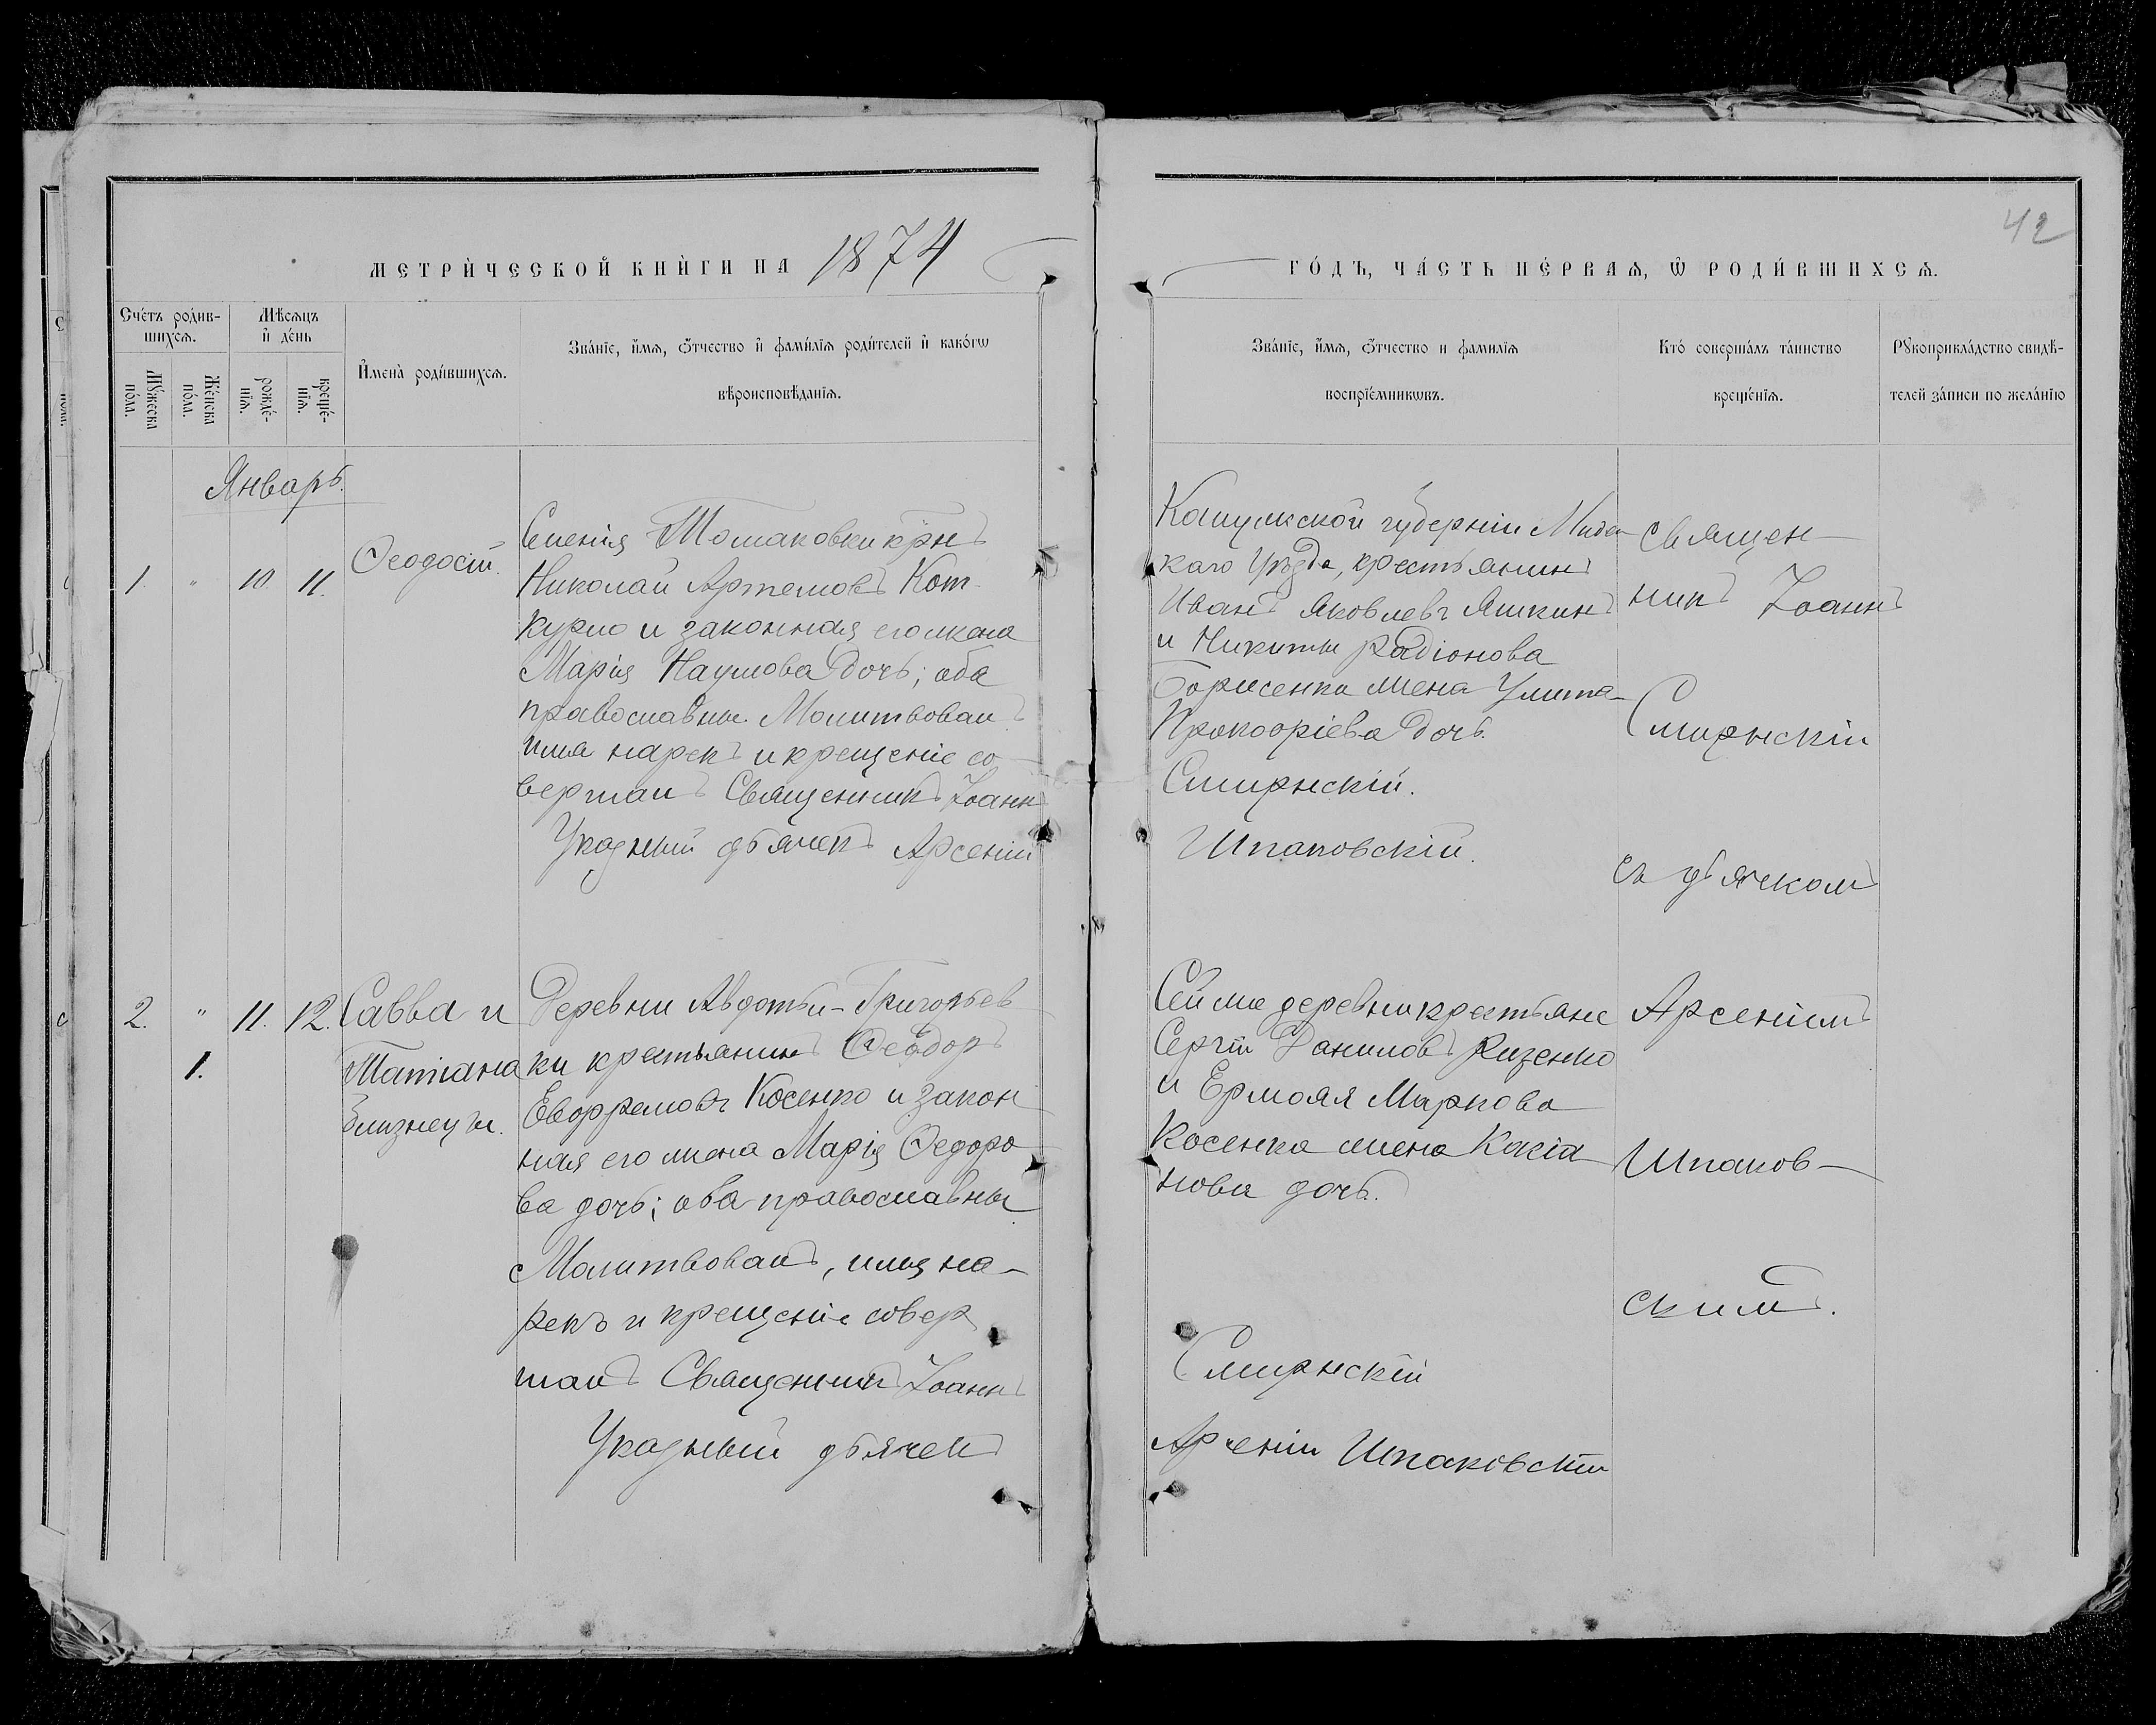 42
МЕТРИ́ЧЕСКОЙ КНИ́ГИ НА 1874
ГО́ДЪ, ЧА́СТЬ ПЕ́РВАѦ, Ѡ РОДИ́ВШИХСѦ.
Сче́тъ роди́в-
шихсѧ.
Мѣ́сѧцъ
и҆ де́нь
Мꙋ́жеска
по́ла.
Же́нска
по́ла.
рожде́-
нїѧ.
креще́-
нїѧ.
И҆мена̀ роди́вшихсѧ.
Зва́нїе, и҆́мѧ, ѻ҆́тчество и҆ фами́лїѧ роди́телей и҆ како́гѡ
вѣроисповѣ́данїѧ.
Зва́нїе, и҆́мѧ, ѻ҆́тчество и фами́лїѧ
воспрїе́мникѡвъ.
Кто̀ соверша́лъ та́инство
креще́нїѧ.
Рꙋкоприкла́дство свидѣ́-
телей за́писи по жела́нїю
Январь.
1. " 10. 11.
Ѳеодосій.
Томаковки крнъ
Николай Артемовъ Кот-
курно и законная его жена
Марія Наумова дочь; оба
православные. Молитвовалъ
имя нарекъ и крещеніе со-
вершалъ Священникъ Іоаннъ
Указный дьячекъ Арсеній
губерніи
каго Уѣзда, крестьянинъ
Иванъ Яковлевъ Яшкинъ
и Никиты Радіонова
Борисенка жена Улита
Прокофіева дочь.
Смирнскій.
Шпаковскій.
Священ-
никъ Іоаннъ
Смирнскій
съ дьячкомъ
Арсеніемъ
Шпаков-
скимъ.
2. " 11. 12.
1.
Савва и
Татіана
близнецы.
Деревни Авдотьи-Григорьев
ки крестьянинъ Ѳеодоръ
Евфремовъ Косенко и закон
ная его жена Марія Ѳедоро
ва дочь; оба православны
Молитвовалъ, имя на-
рекъ и крещеніе совер
шалъ Священникъ Іоаннъ
Указный дьячекъ
Сей же деревни крестьяне
Сергій Даниловъ Кизенко
и Ермолая Маркова
Косенка жена
нова дочь.
Смирнскій
Арсеній Шпаковскій